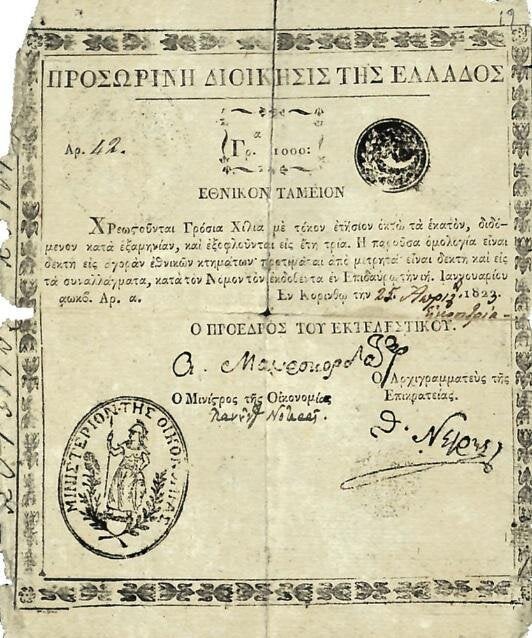 19
ΠΡΟΣΩΡΙΝΗ ΔΙΟΙΚΗΣΙΣ ΤΗΣ ΕΛΛΑΔΟΣ
Αρ. 42.
α
Γρ. 1000:
ΕΘΝΙΚΟΝ ΤΑΜΕΙΟΝ
Χρεωςοῦνται Γρόσια Χίλια μὲ τόκον ἐτήσιον ὀκτὼ τὰ ἑκατὸν, διδό-
μενον κατὰ ἑξαμηνίαν, καὶ ἐξοφλοῦνται εἰς ἔτη τρία. Ἡ παροῦσα ὁμολογία εἶναι
δεκτὴ εἰς ἀγορὰν ἐθνικῶν κτημάτων· προτιμᾶται ἀπὸ μετρητά· εἶναι δεκτὴ καὶ εἰς
τὰ συναλλάγματα, κατὰ τὸν Νόμον τὸν ἐκδοθέντα ἐν Επιδαύρῳ τὴν ιή. Ιαννουαρίου
αωκβ. Αρ. α. Εν Κορίνθῳ τὴν 25 1822.
Ο ΠΡΟΕΔΡΟΣ ΤΟΥ ΕΚΤΕΛΕΣΤΙΚΟΥ.
Α. Μαυροκορδ
Ο Αρχιγραμματεὺς τῆς
Ο Μινίςρος τῆς Οἰκονομίας Επικρατείας.
Θ. Νέγρης
ΜΙΝΙΣΤΕΡΙΟΝ ΤΗΣ ΟΙΚΟΝΟΜΙΑΣ